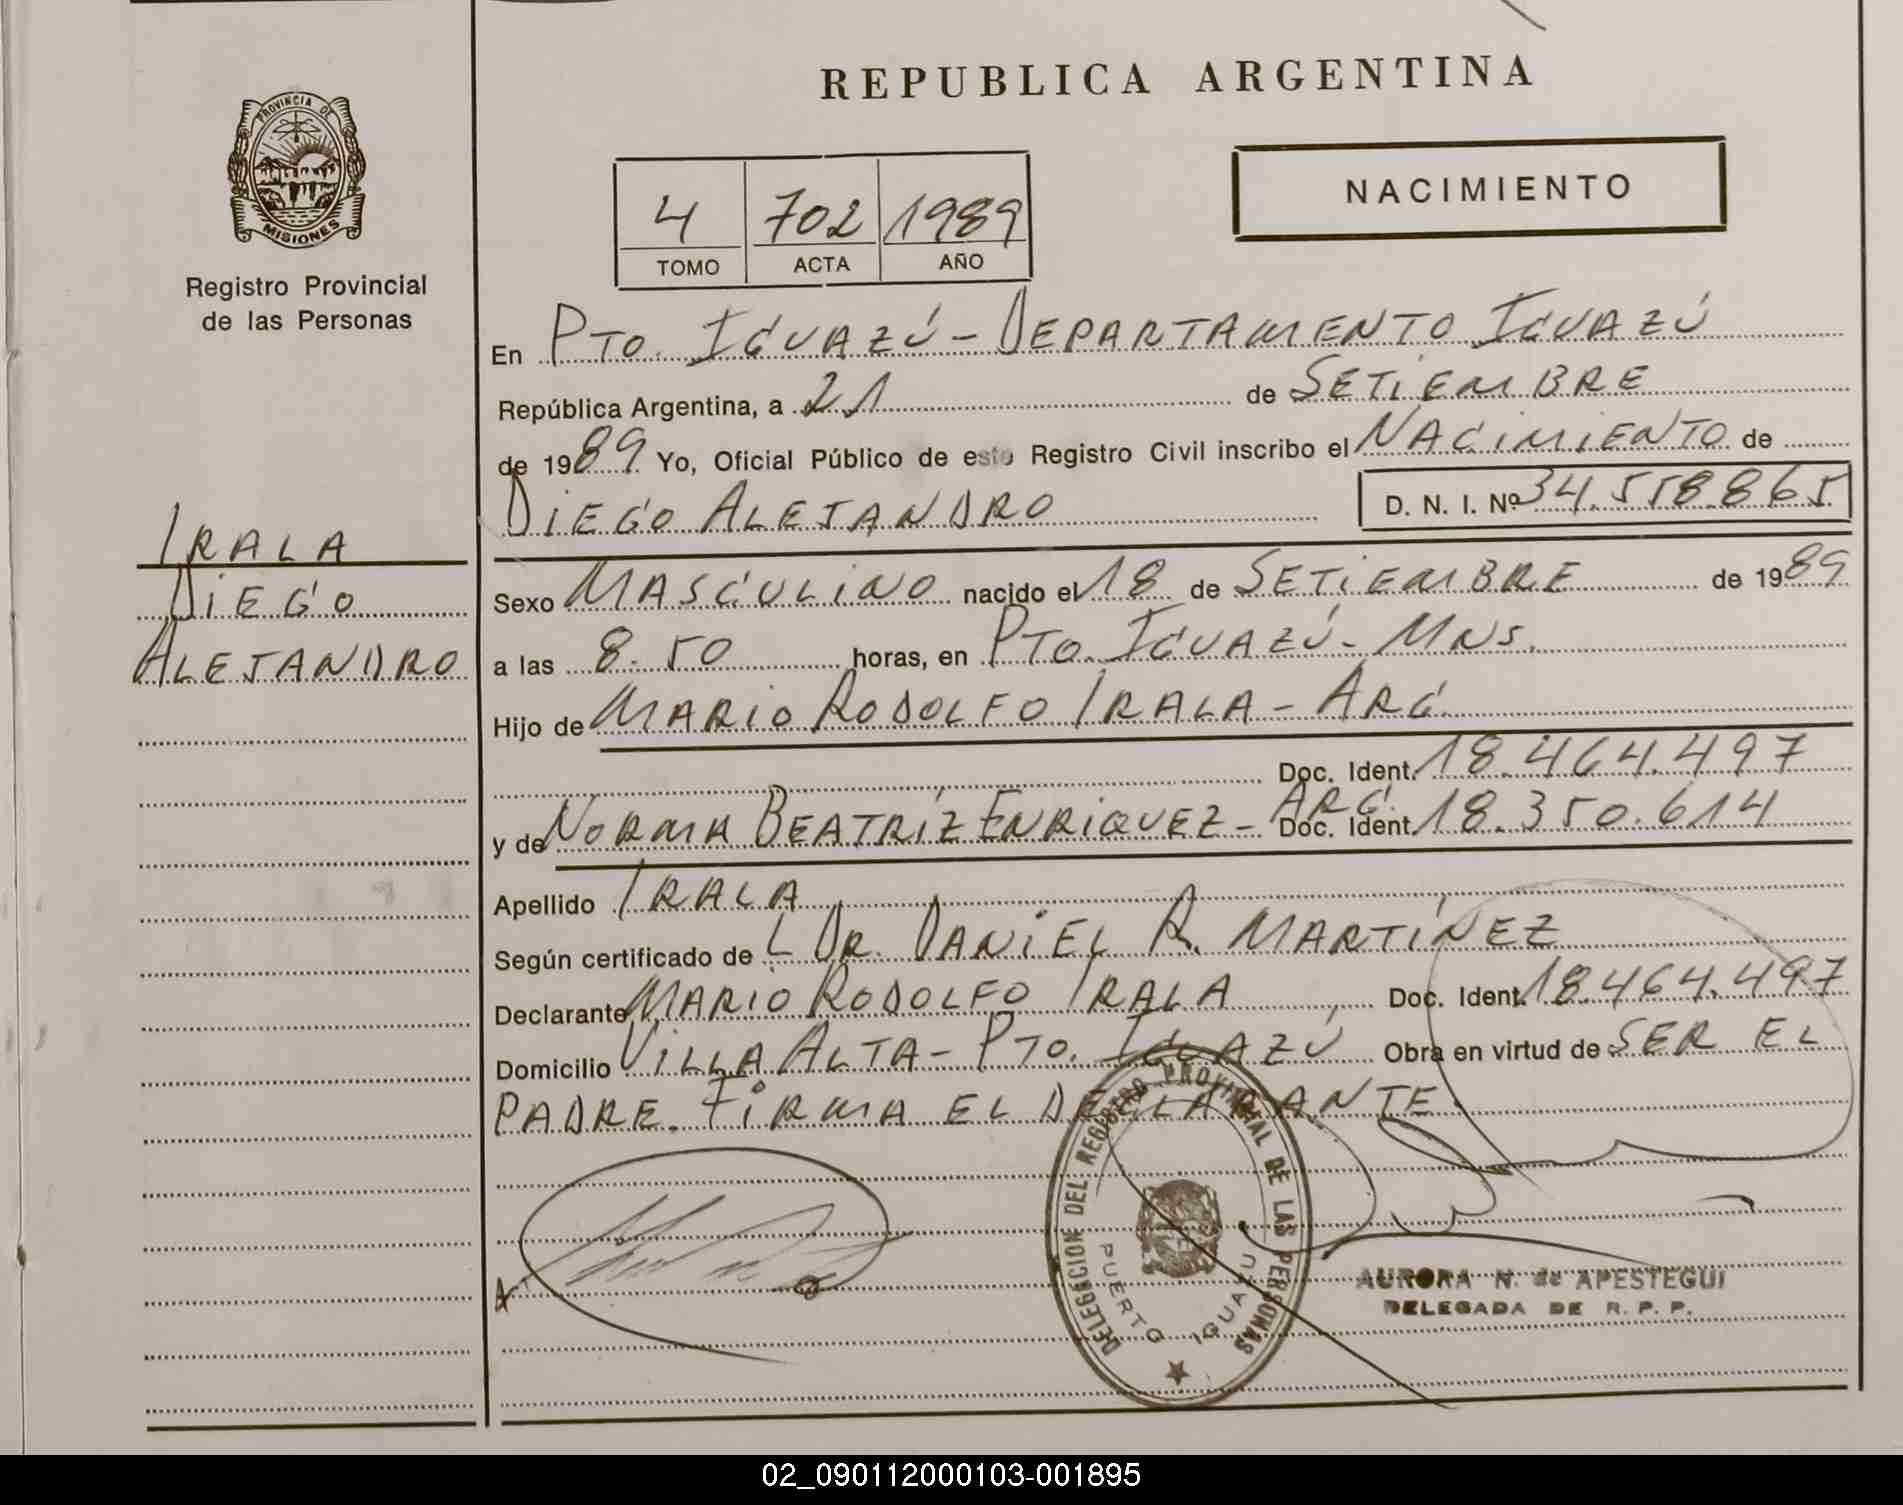 REPUBLICA ARGENTINA
PROVINCIA DE
MISIONES
Registro Provincial
de las Personas
NACIMIENTO
4 702 1989
TOMO ACTA AÑO
En PTO. IGUAZÚ - DEPARTAMENTO IGUAZÚ
República Argentina, a 21 de SETIEMBRE
de 1989 Yo, Oficial Público de este Registro Civil inscribo el NACIMIENTO de
DIEGO ALEJANDRO D. N. I. Nº 34.558.865
IRALA
DIEGO
ALEJANDRO
Sexo MASCULINO nacido el 18 de SETIEMBRE de 1989
a las 8.50 horas, en PTO. IGUAZÚ - MNS.
Hijo de MARIO RODOLFO IRALA - ARG.
Doc. Ident. 18.464.497
y de NORMA BEATRÍZ ENRIQUEZ - ARG. Doc. Ident. 18.350.614
Apellido IRALA
Según certificado de L DR. DANIEL R. MARTÍNEZ
Declarante MARIO RODOLFO IRALA Doc. Ident. 18.464.497
Domicilio VILLA ALTA - PTO. IGUAZÚ Obra en virtud de SER EL
PADRE. FIRMA EL DECLARANTE
DELEGACION DEL REGISTRO PROVINCIAL DE LAS PERSONAS
PUERTO IGUAZU
AURORA N. de APESTEGUI
DELEGADA DE R. P. P.
02_090112000103-001895